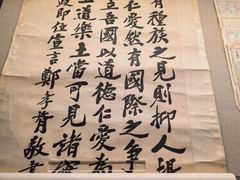 有種族之見則抑人揚
仁愛然有國際之爭
立吾國以道德仁愛為
王道樂土當可見諸實
政即位宣言鄭孝胥敬書